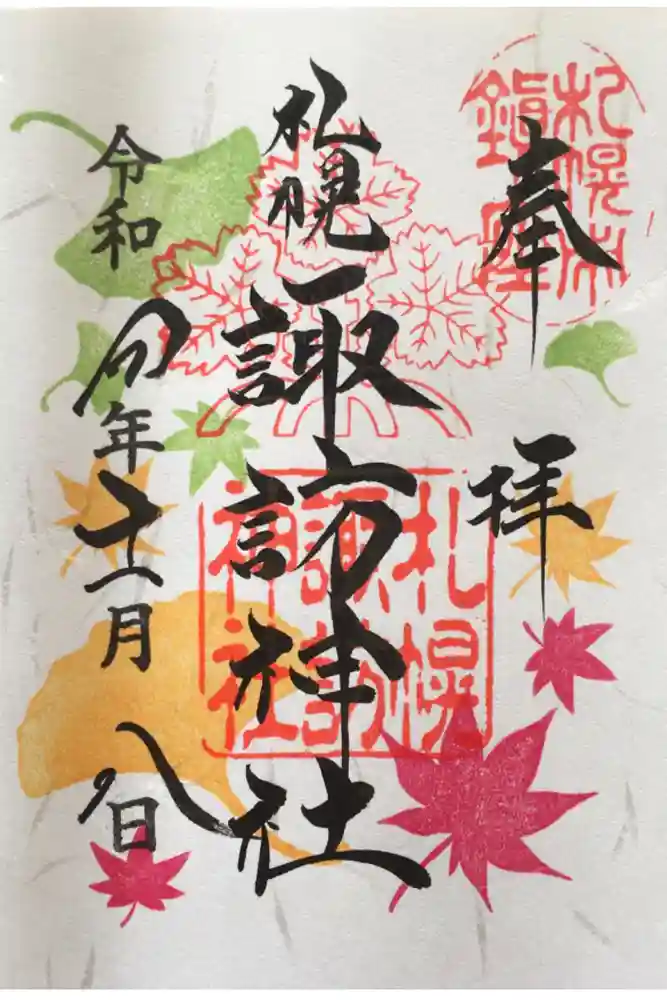 奉拝
札幌市
鎮座
札幌
諏訪神社
札幌
諏訪
神社
令和四年十一月八日